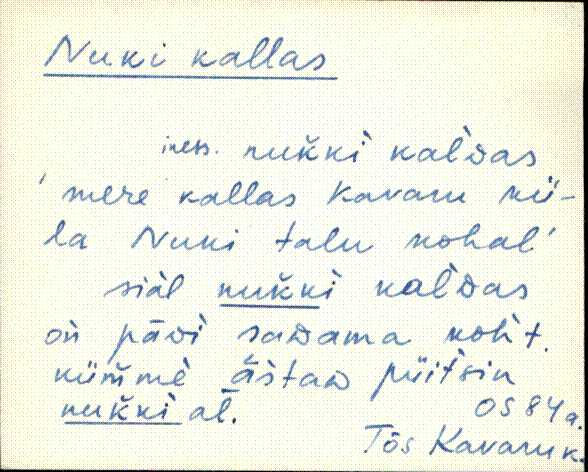 Nuki kallas
iness. nuk̆ki kal̀das
'mere kallas Kavaru kü-
la Nuki talu kohal'
siäl nuk̆ki kal̀das
oǹ pāDi saDama koh̀t.
küm̆mè āstaD püit̀sin
nuk̆ki al̄.
OS 84a.
Tõs Kavaru k.